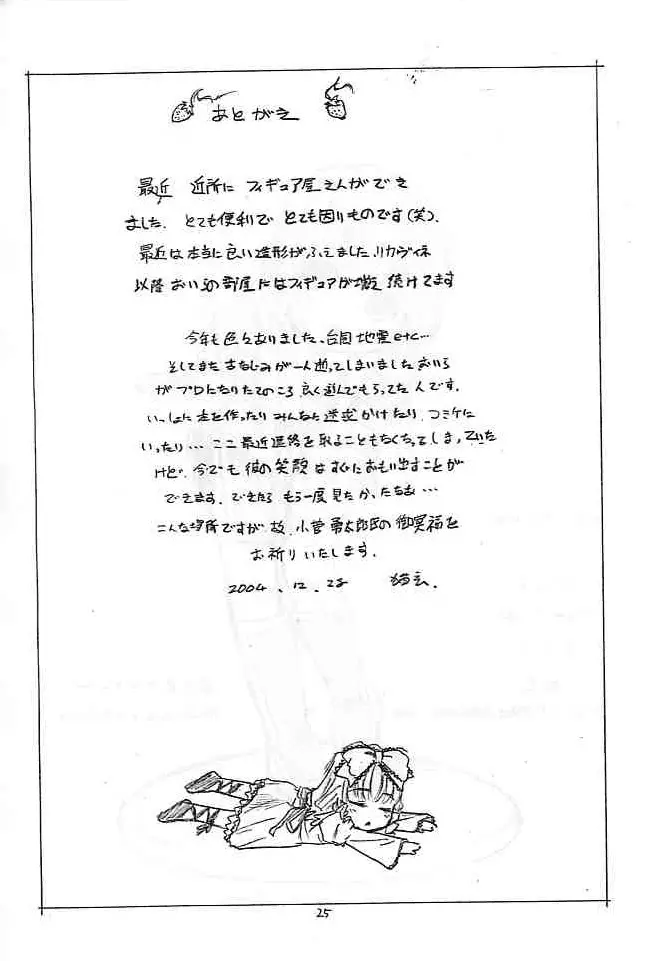 あとがき
最近 近所に フィギュア屋さんができ
ました。とても便利で とても困りものです(笑)。
最近は本当に良い造形がふえました。リカヴィネ
以降 おいらの部屋にはフィギュアが増え続けてます
今年も色々ありました、台風 地震 etc…
そしてまた おさなじみが一人逝ってしまいました おいら
がプロになりたてのころ 良く遊んでもらってた人です。
いっしょに本を作ったり みんなに迷惑かけたり、コミケに
いったり… ここ最近連絡を取ることもなくなってしまっていた
けど、今でも彼の笑顔はすぐにおもい出すことが
できます。できたら もう一度見たかったなぁ…
こんな場所ですが 故、小菅 勇太郎氏の御冥福を
お祈りいたします。
2004、12.28
25